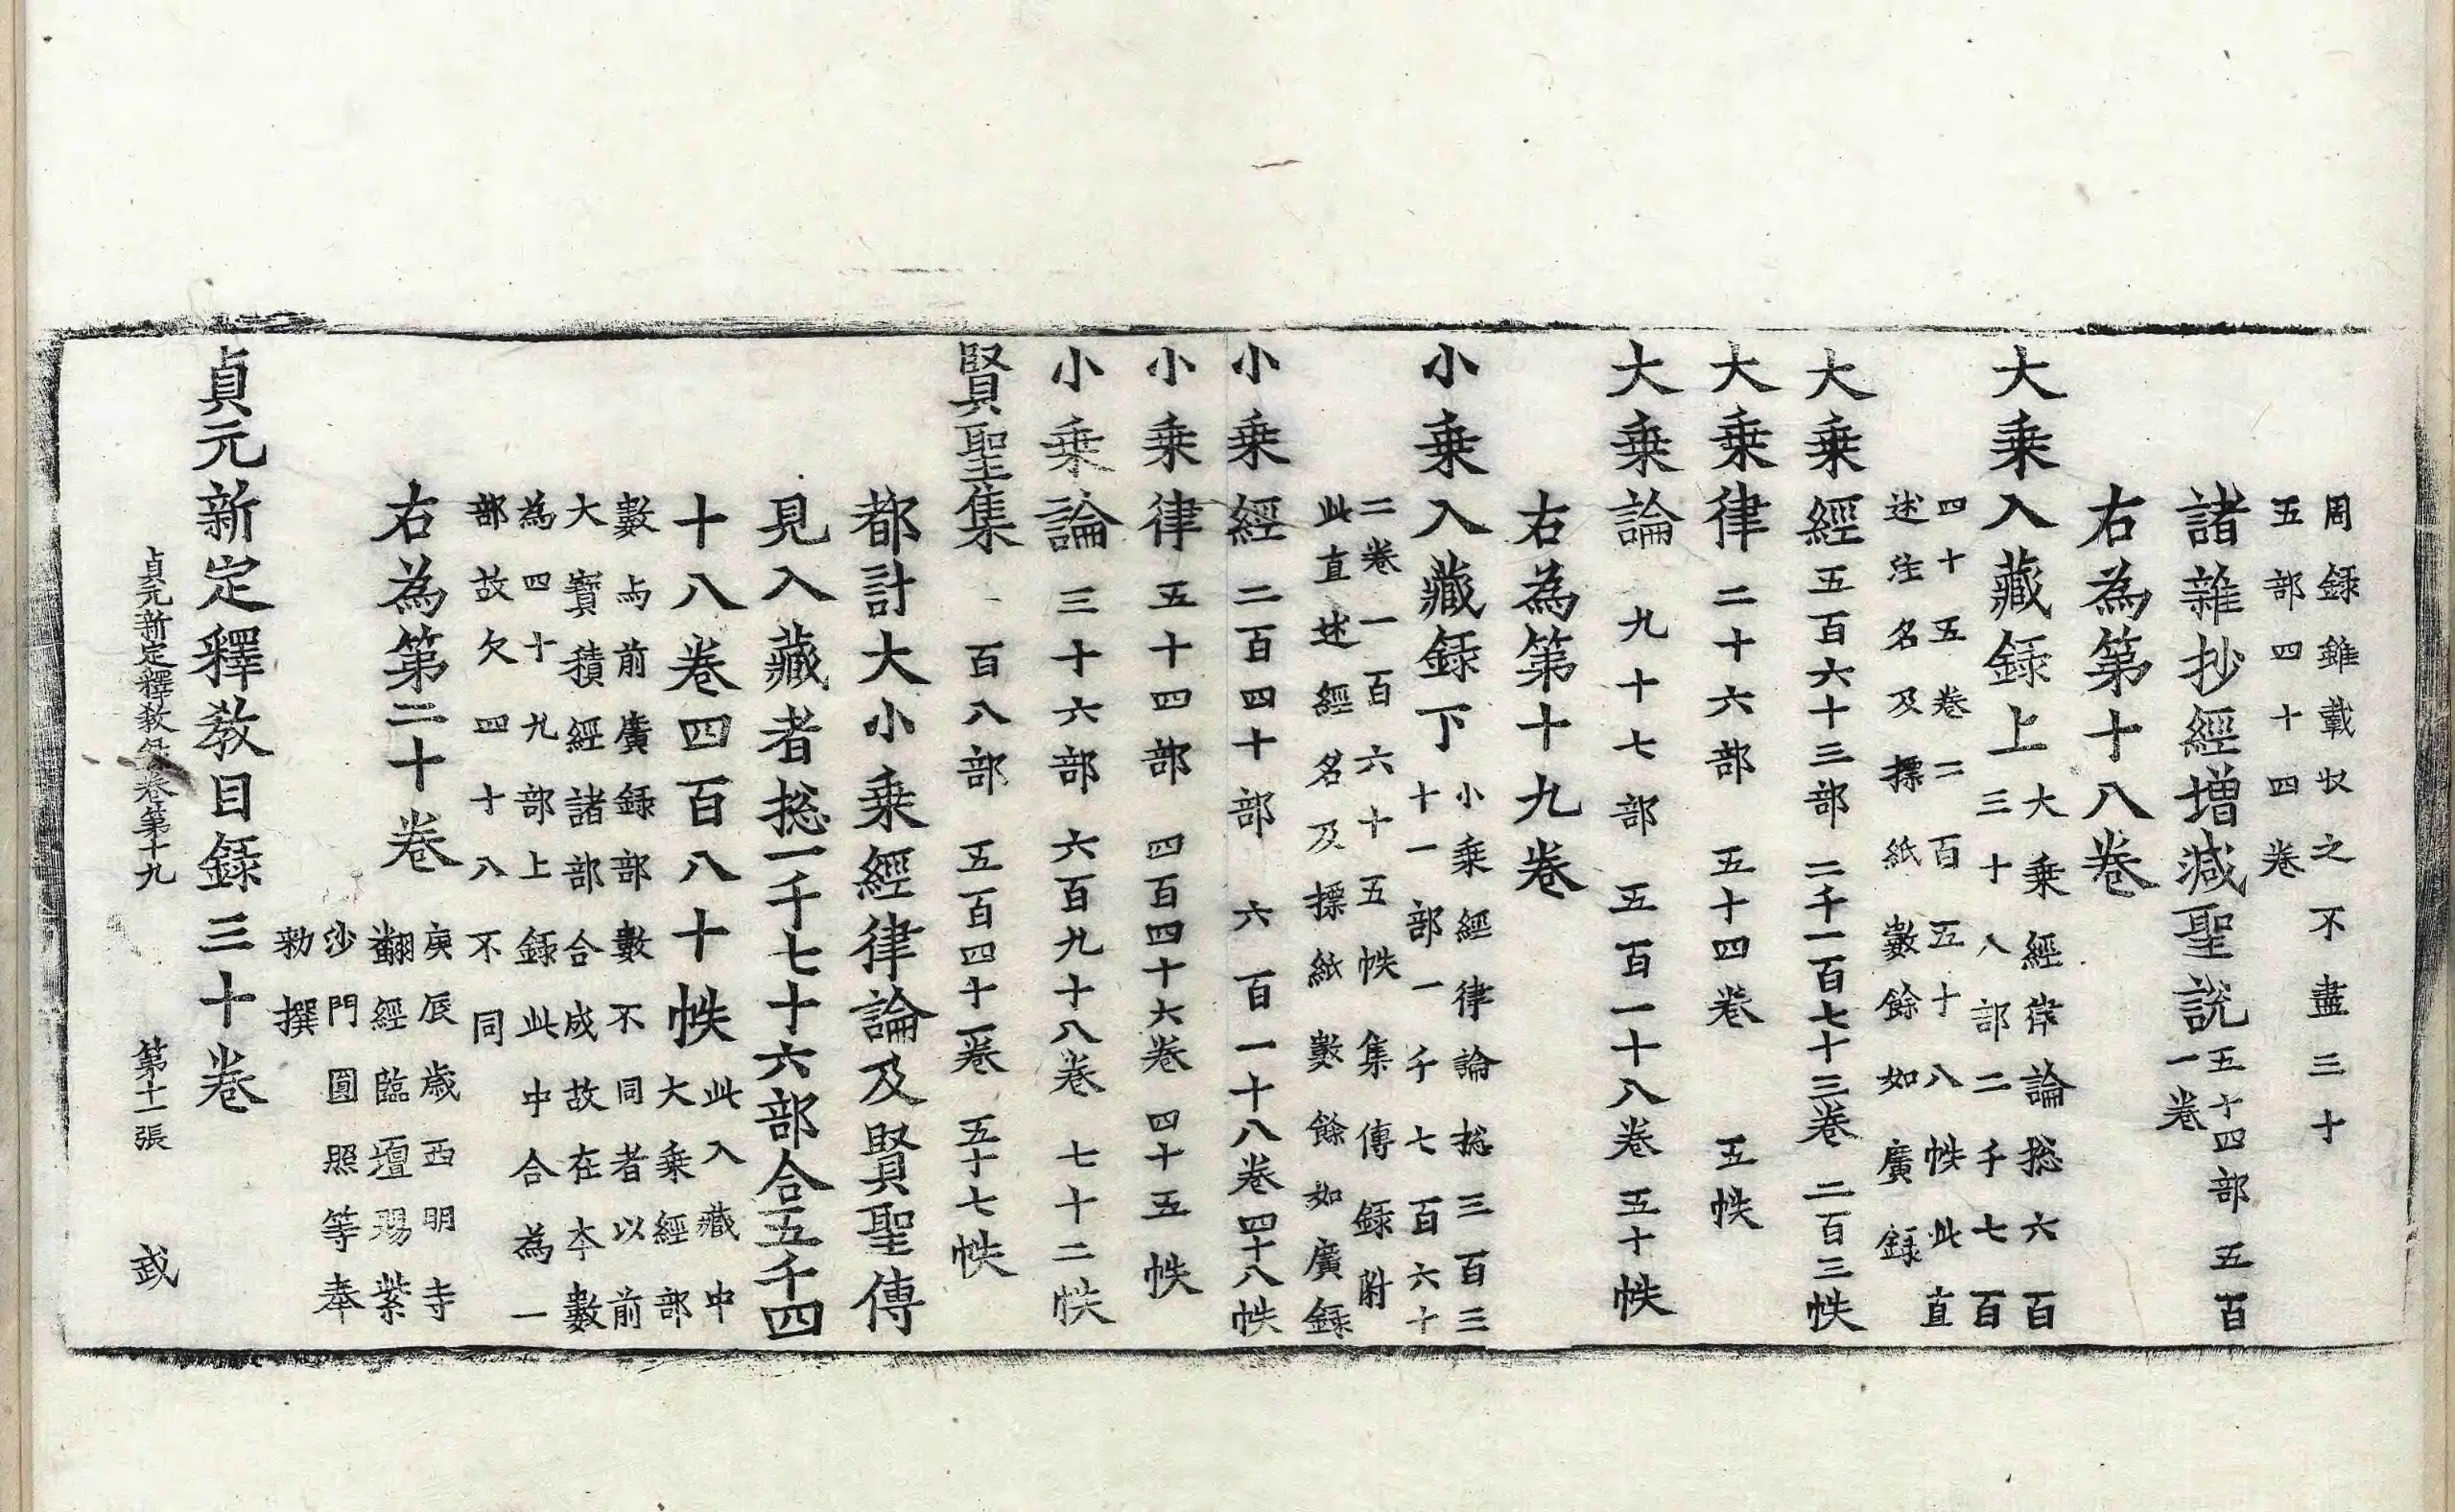 周録雖載収之不盡三十
五部四十四卷
諸雜抄經增減聖說五十四部五百
一卷
右為第十八卷
大乗入藏録上大乗經律論捴六百
三十八部二千七百
四十五卷二百五十八帙此直
述注名及摽紙數餘如廣録
大乗經五百六十三部二千一百七十三卷二百三帙
大乗律二十六部五十四卷五帙
大乗論九十七部五百一十八卷五十帙
右為第十九卷
小乗入藏録下小乗經律論捴三百三
十一部一千七百六十
二卷一百六十五帙集傳録附
此直述經名及摽紙數餘如廣録
小乗經二百四十部六百一十八卷四十八帙
小乗律五十四部四百四十六卷四十五帙
小乗論三十六部六百九十八卷七十二帙
賢聖集一百八部五百四十一卷五十七帙
都計大小乗經律論及賢聖傳
見入藏者捴一千七十六部合五千四
十八卷四百八十帙此入藏中
大乗經部
數与前廣録部數不同者以前
大寳積經諸部合成故在本數
為四十九部上録此中合為一
部故欠四十八不同
右為第二十卷
庚辰歲西明寺
翻經臨壇賜紫
沙門圓照等奉
勑撰
貞元新定釋教目録三十卷
貞元新定釋教録卷第十九 第十一張 武